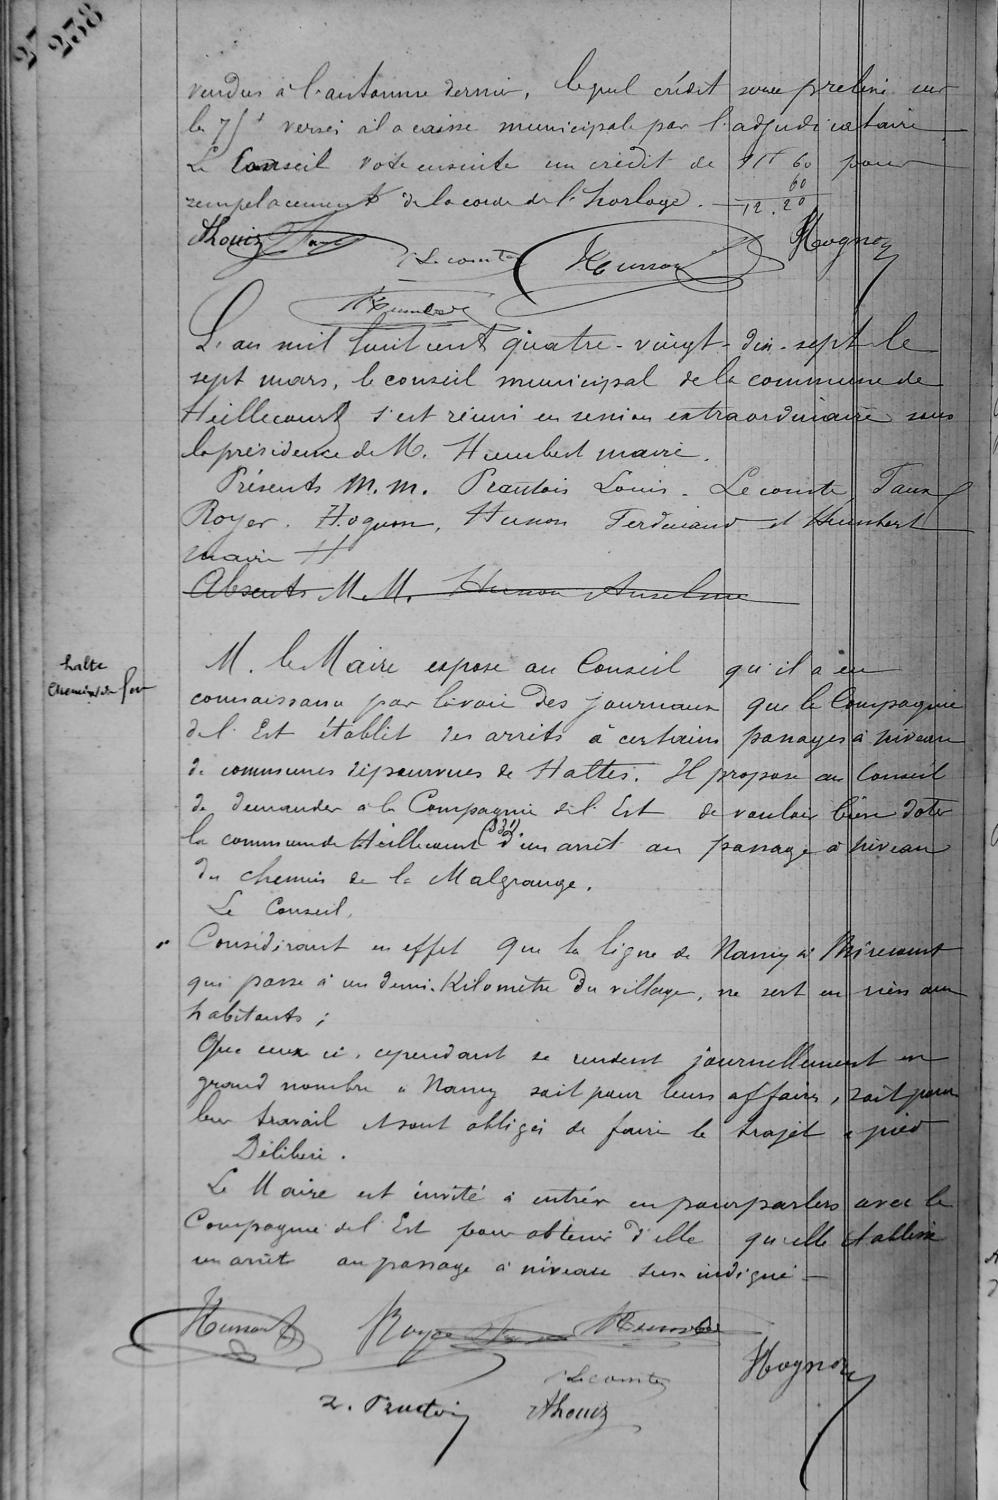 27
238
vendus à l'automne dernier, lequel crédit sera prélevé sur
les 75f versés à la caisse municipale par l'adjudicataire
Le Conseil vote ensuite un crédit de 11f 60 pour
60
remplacement de la corde de l'horloge. — 12.20
Lecomte Husson Hognon
Humbert
L'an mil huit cent quatre-vingt-dix-sept le
sept mars, le conseil municipal de la commune de
Heillecourt s'est réuni en session extraordinaire sous
la présidence de M. Humbert maire.
Présents M.M. Prautois Louis. Lecomte,
Royer. Hognon, Husson Ferdinand et Humbert
maire
Absents M.M. Husson Anselme
halte
chemin de fer
M. le Maire expose au Conseil qu'il a eu
connaissance par la voie des journaux que la Compagnie
de l'Est établit des arrêts à certains passages à niveau
de communes dépourvues de Haltes. Il propose au Conseil
de demander à la Compagnie de l'Est de vouloir bien doter
la commune de Heillecourt d'un arrêt au passage à niveau
du chemin de la Malgrange.
Le Conseil,
Considérant en effet que la ligne de Nancy à Mirecourt
qui passe à un demi-Kilomètre du village, ne sert en rien aux
habitants ;
Que ceux ci, cependant se rendent journellement en
grand nombre à Nancy soit pour leurs affaires, soit pour
leur travail et sont obligés de faire le trajet à pied
Délibère.
Le Maire est invité à entrer en pourparlers avec la
Compagnie de l'Est pour obtenir d'elle qu'elle établisse
un arrêt au passage à niveau sus-indiqué —
Husson Royer Humbert
Lecomte Hognon